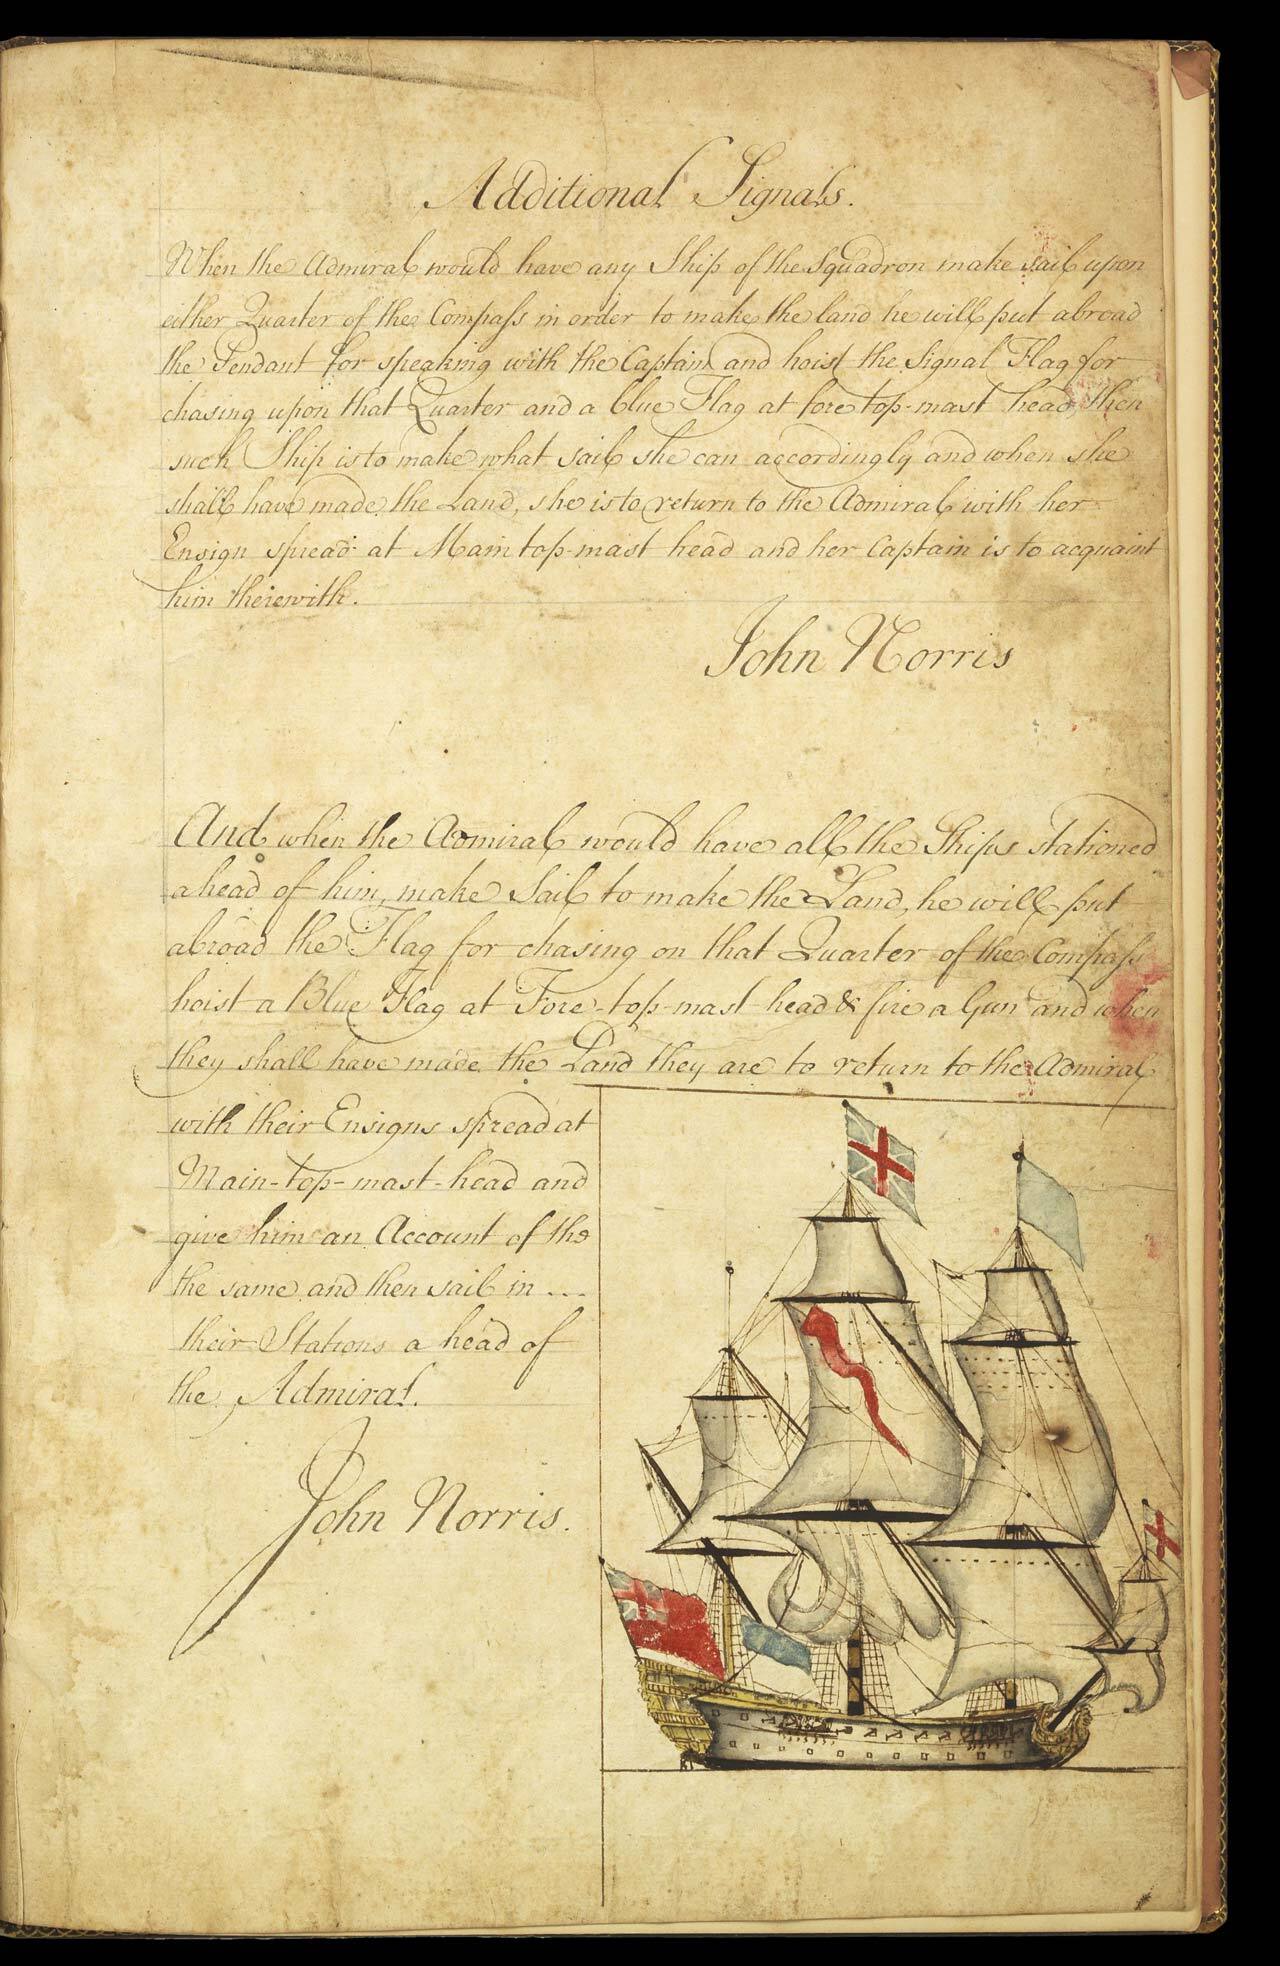 Additional Signals.
When the Admiral would have any Ship of the Squadron make sail upon
either Quarter of the Compass in order to make the land he will put abroad
the Pendant for speaking with the Captain and hoist the Signal Flag for
chasing upon that Quarter and a blue Flag at fore top-mast head, then
such Ship is to make what sail she can accordingly and when she
shall have made the Land, she is to return to the Admiral with her
Ensign spread at Main top-mast head and her Captain is to acquaint
him therewith.
John Norris
And when the Admiral would have all the Ships stationed
ahead of him, make Sail to make the Land, he will put
abroad the Flag for chasing on that Quarter of the Compass
hoist a Blue Flag at Fore-top-mast-head & fire a Gun and when
they shall have made the Land they are to return to the Admiral
with their Ensigns spread at
Main-top-mast-head and
give him an Account of the
the same and then sail in ...
their Stations a head of
the Admiral.
John Norris.